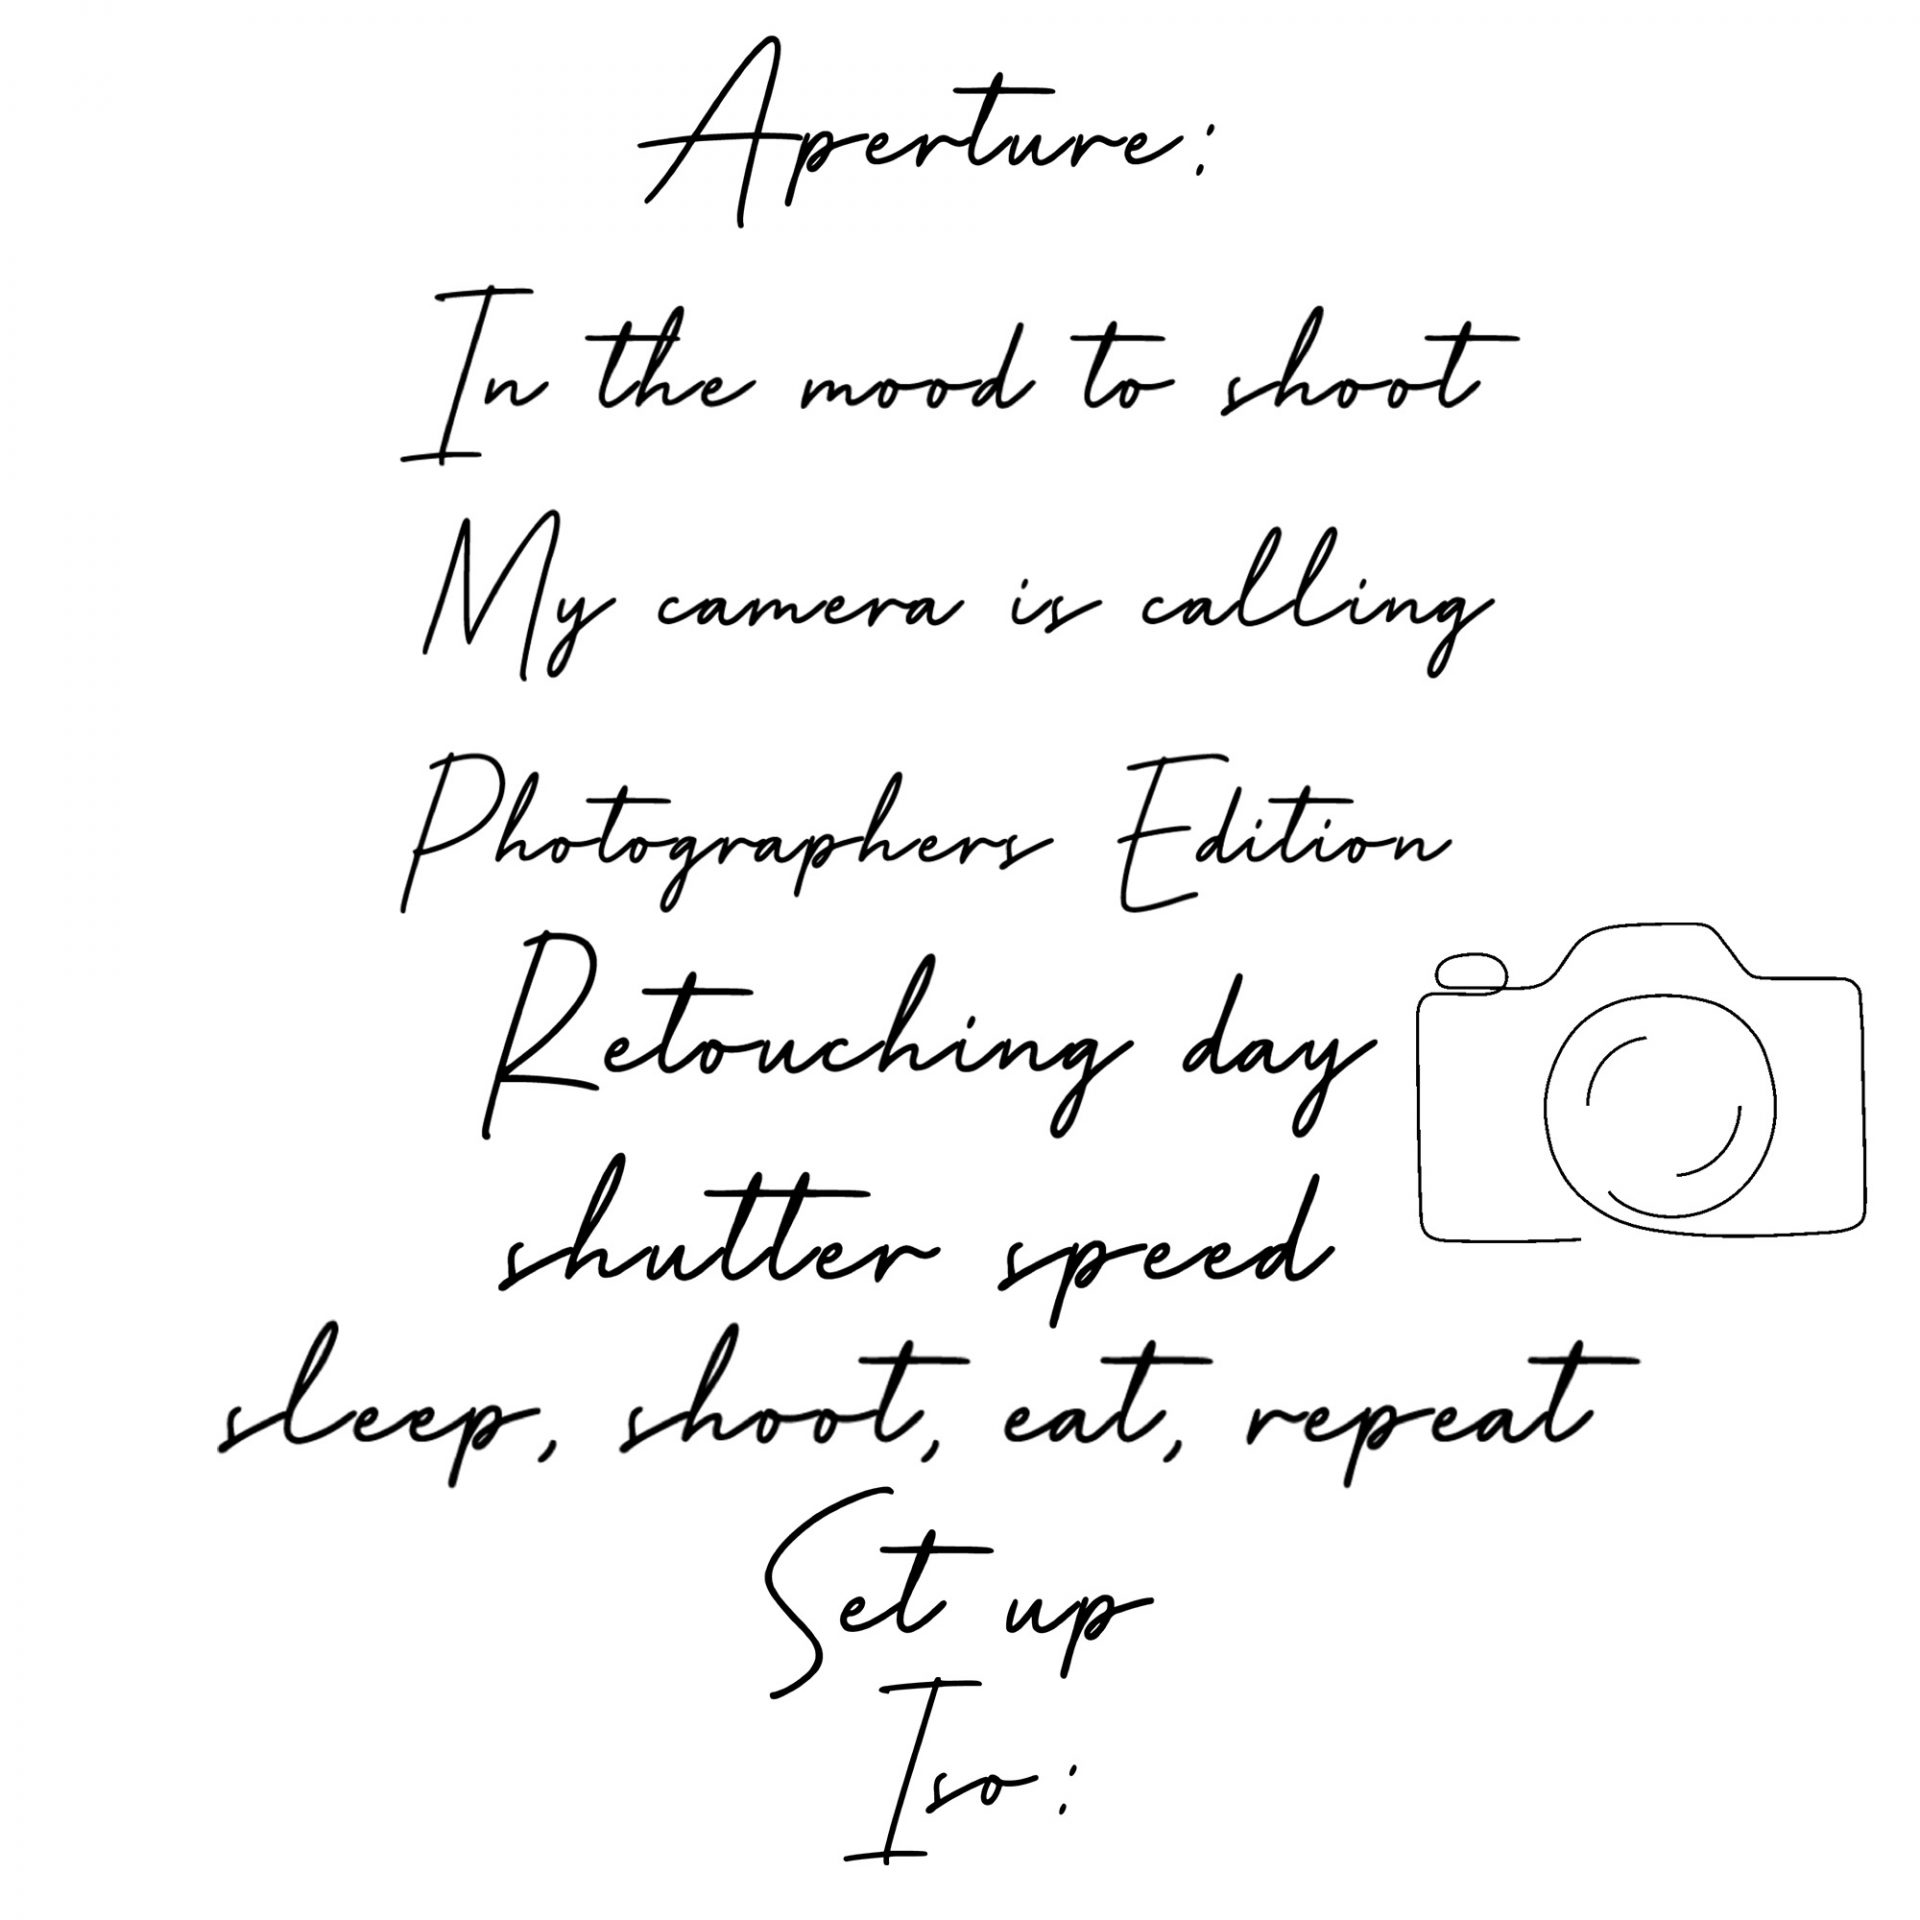 Aperture:
In the mood to shoot
My camera is calling
Photographers Edition
Retouching day
shutter speed
sleep, shoot, eat, repeat
Set up
Iso: